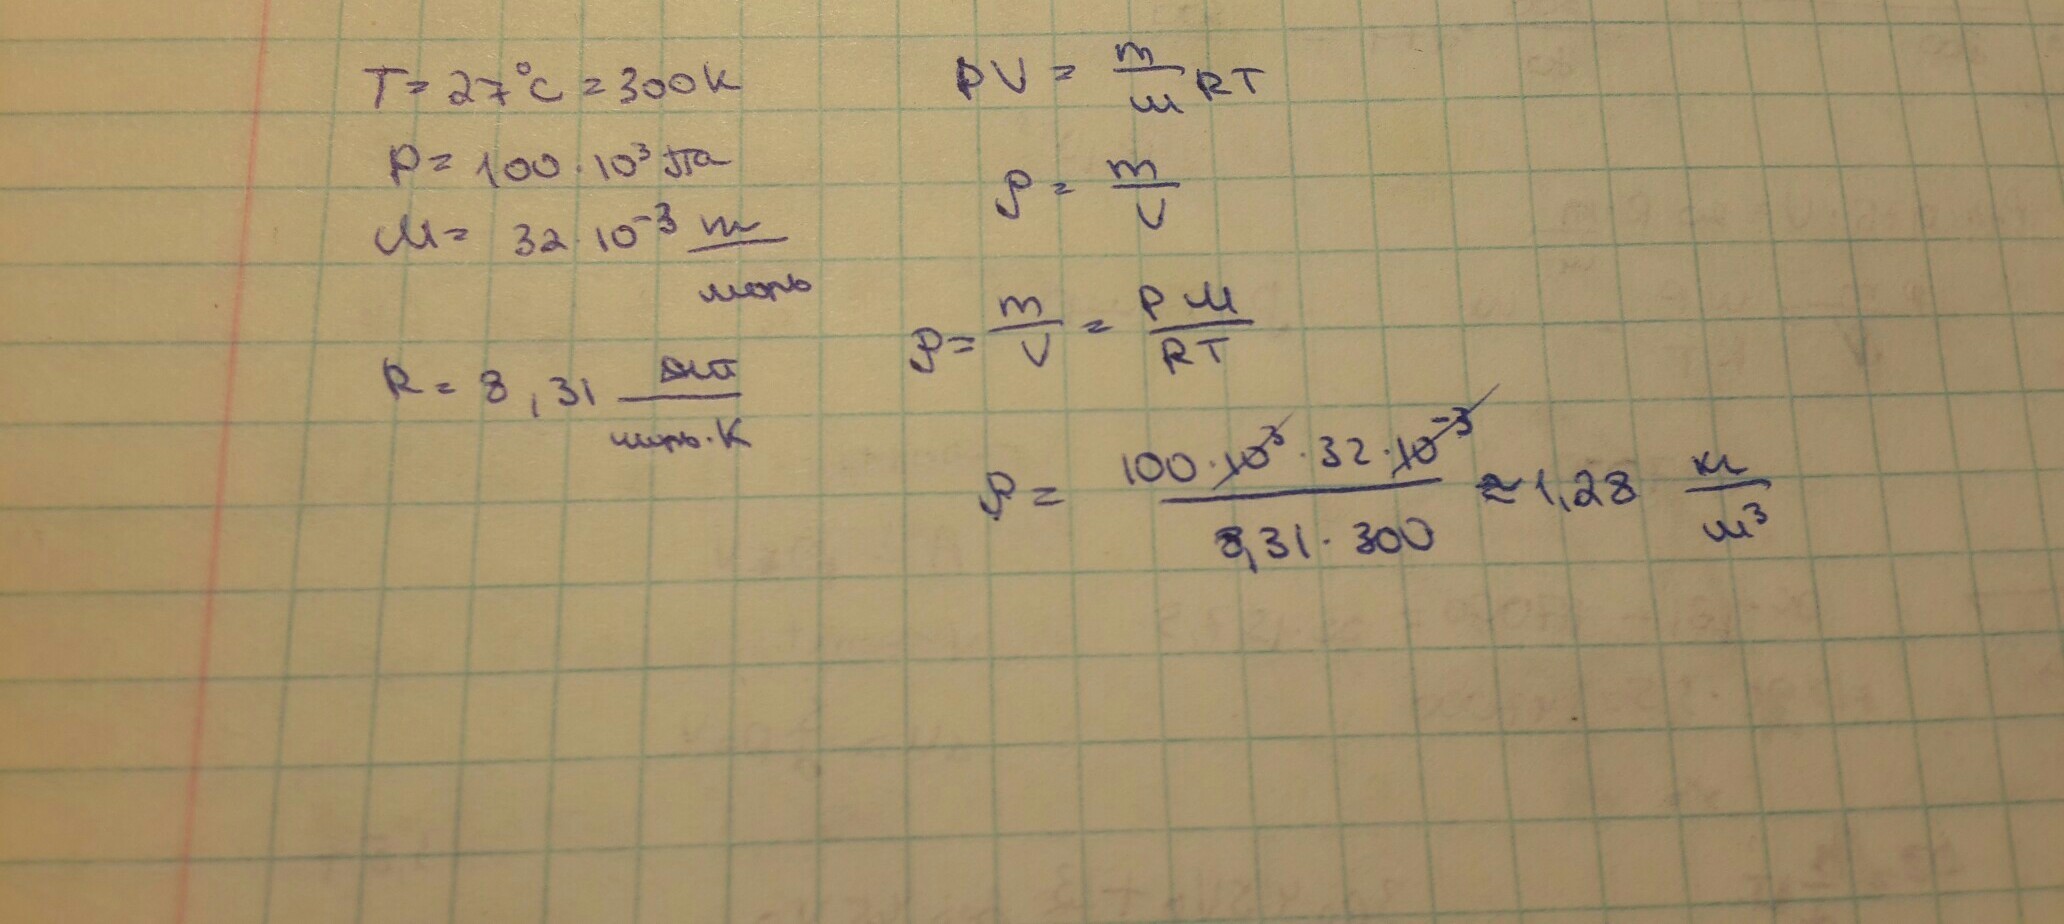 T = 27°C = 300K
P = 100 · 10³ Па
M = 32 · 10⁻³ кг/моль
R = 8,31 Дж/моль·K
PV = m/M RT
ρ = m/V
ρ = m/V = PM/RT
ρ = 100 · 10³ · 32 · 10⁻³ / 8,31 · 300 ≈ 1,28 кг/м³